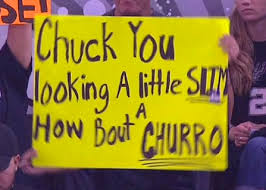 SET
Chuck You
looking A little SLIM
How Bout A CHURRO
2